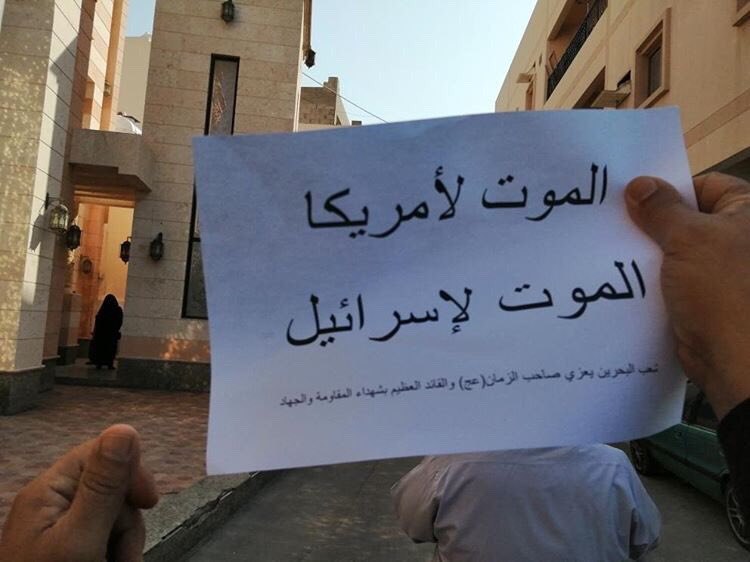 الموت لأمريكا
الموت لإسرائيل
شعب البحرين يعزي صاحب الزمان(عج) والقائد العظيم بشهداء المقاومة والجهاد